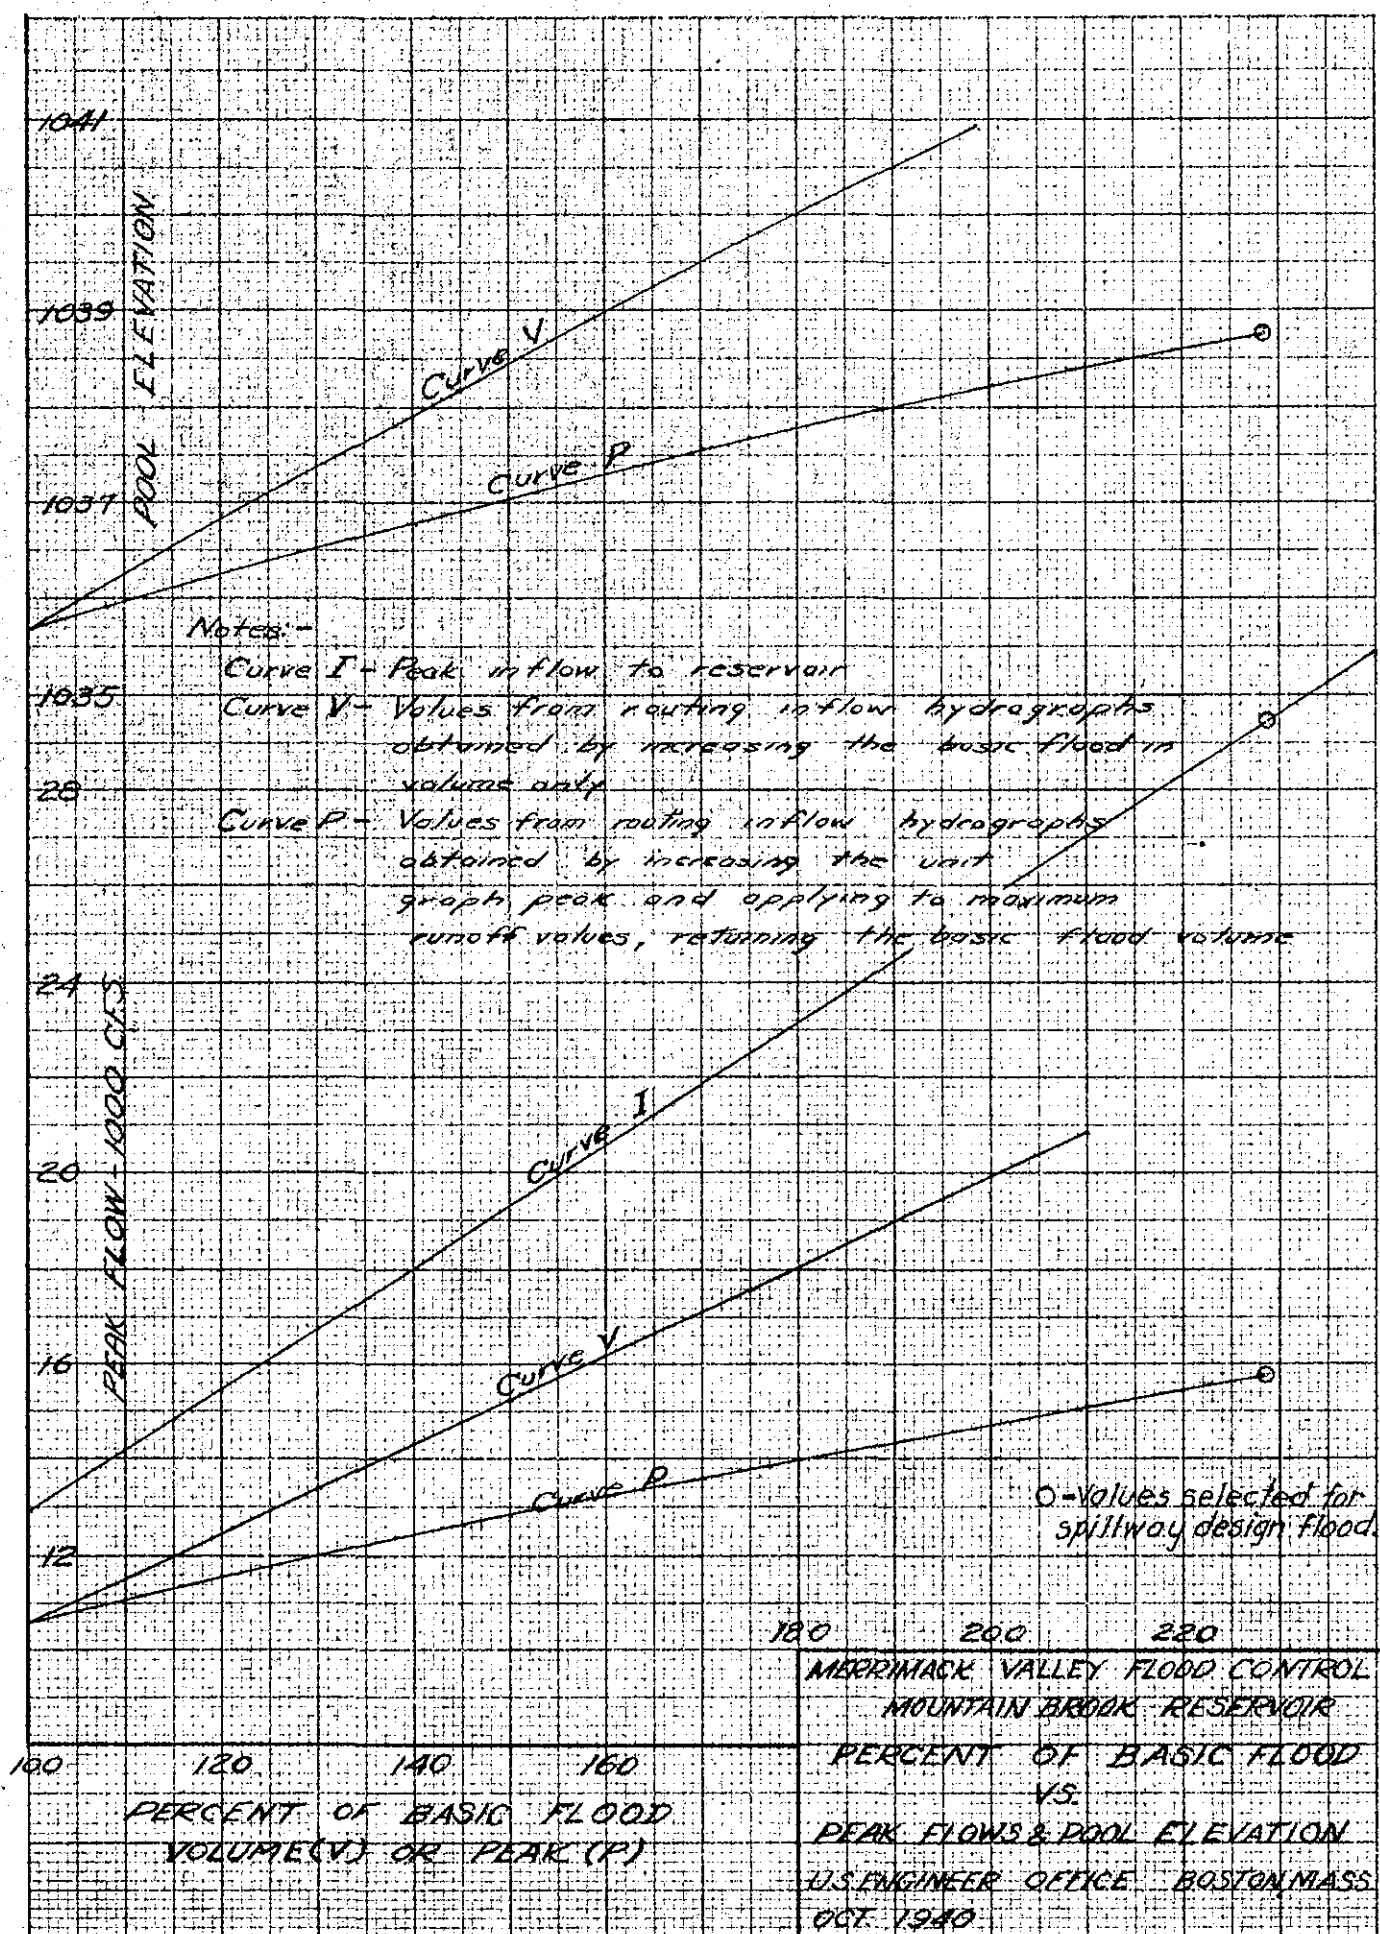 1041
1039
1037
1035
POOL ELEVATION
Curve V
Curve P
Notes:-
Curve I - Peak inflow to reservoir
Curve V - Values from routing inflow hydrographs
obtained by increasing the basic flood in
volume only
Curve P - Values from routing inflow hydrographs
obtained by increasing the unit
graph peak and applying to maximum
runoff values, retaining the basic flood volume
28
24
20
16
12
PEAK FLOW-1000 C.F.S.
Curve I
Curve V
Curve P
O-Values selected for
spillway design flood.
180 200 220
100 120 140 160
PERCENT OF BASIC FLOOD
VOLUME (V) OR PEAK (P)
MERRIMACK VALLEY FLOOD CONTROL
MOUNTAIN BROOK RESERVOIR
PERCENT OF BASIC FLOOD
VS.
PEAK FLOWS & POOL ELEVATION
U.S. ENGINEER OFFICE BOSTON, MASS
OCT. 1940